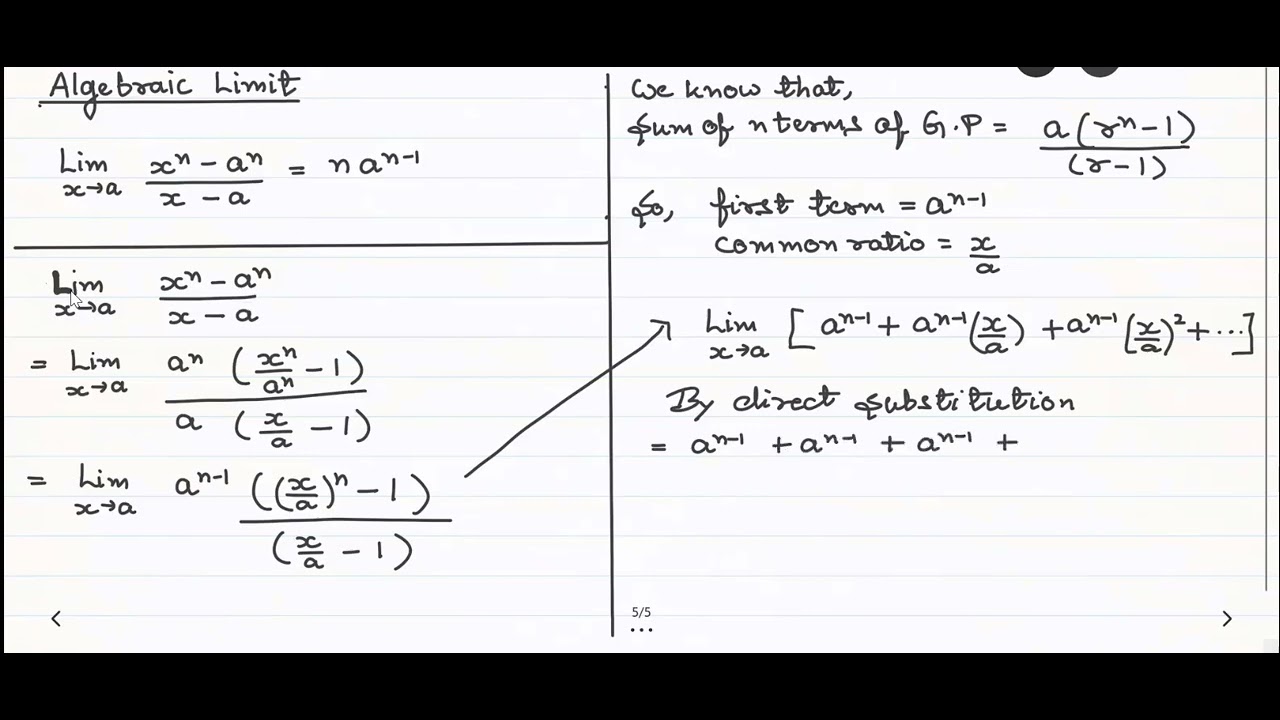 Algebraic Limit
Lim x→a (xⁿ - aⁿ)/(x - a) = n aⁿ⁻¹
Lim x→a (xⁿ - aⁿ)/(x - a)
= Lim x→a aⁿ (xⁿ/aⁿ - 1) / a (x/a - 1)
= Lim x→a aⁿ⁻¹ ((x/a)ⁿ - 1) / (x/a - 1)
We know that,
Sum of n terms of G.P = a(rⁿ - 1)/(r - 1)
So, first term = aⁿ⁻¹
common ratio = x/a
Lim x→a [aⁿ⁻¹ + aⁿ⁻¹(x/a) + aⁿ⁻¹(x/a)² + ...]
By direct substitution
= aⁿ⁻¹ + aⁿ⁻¹ + aⁿ⁻¹ +
< 5/5 >
...